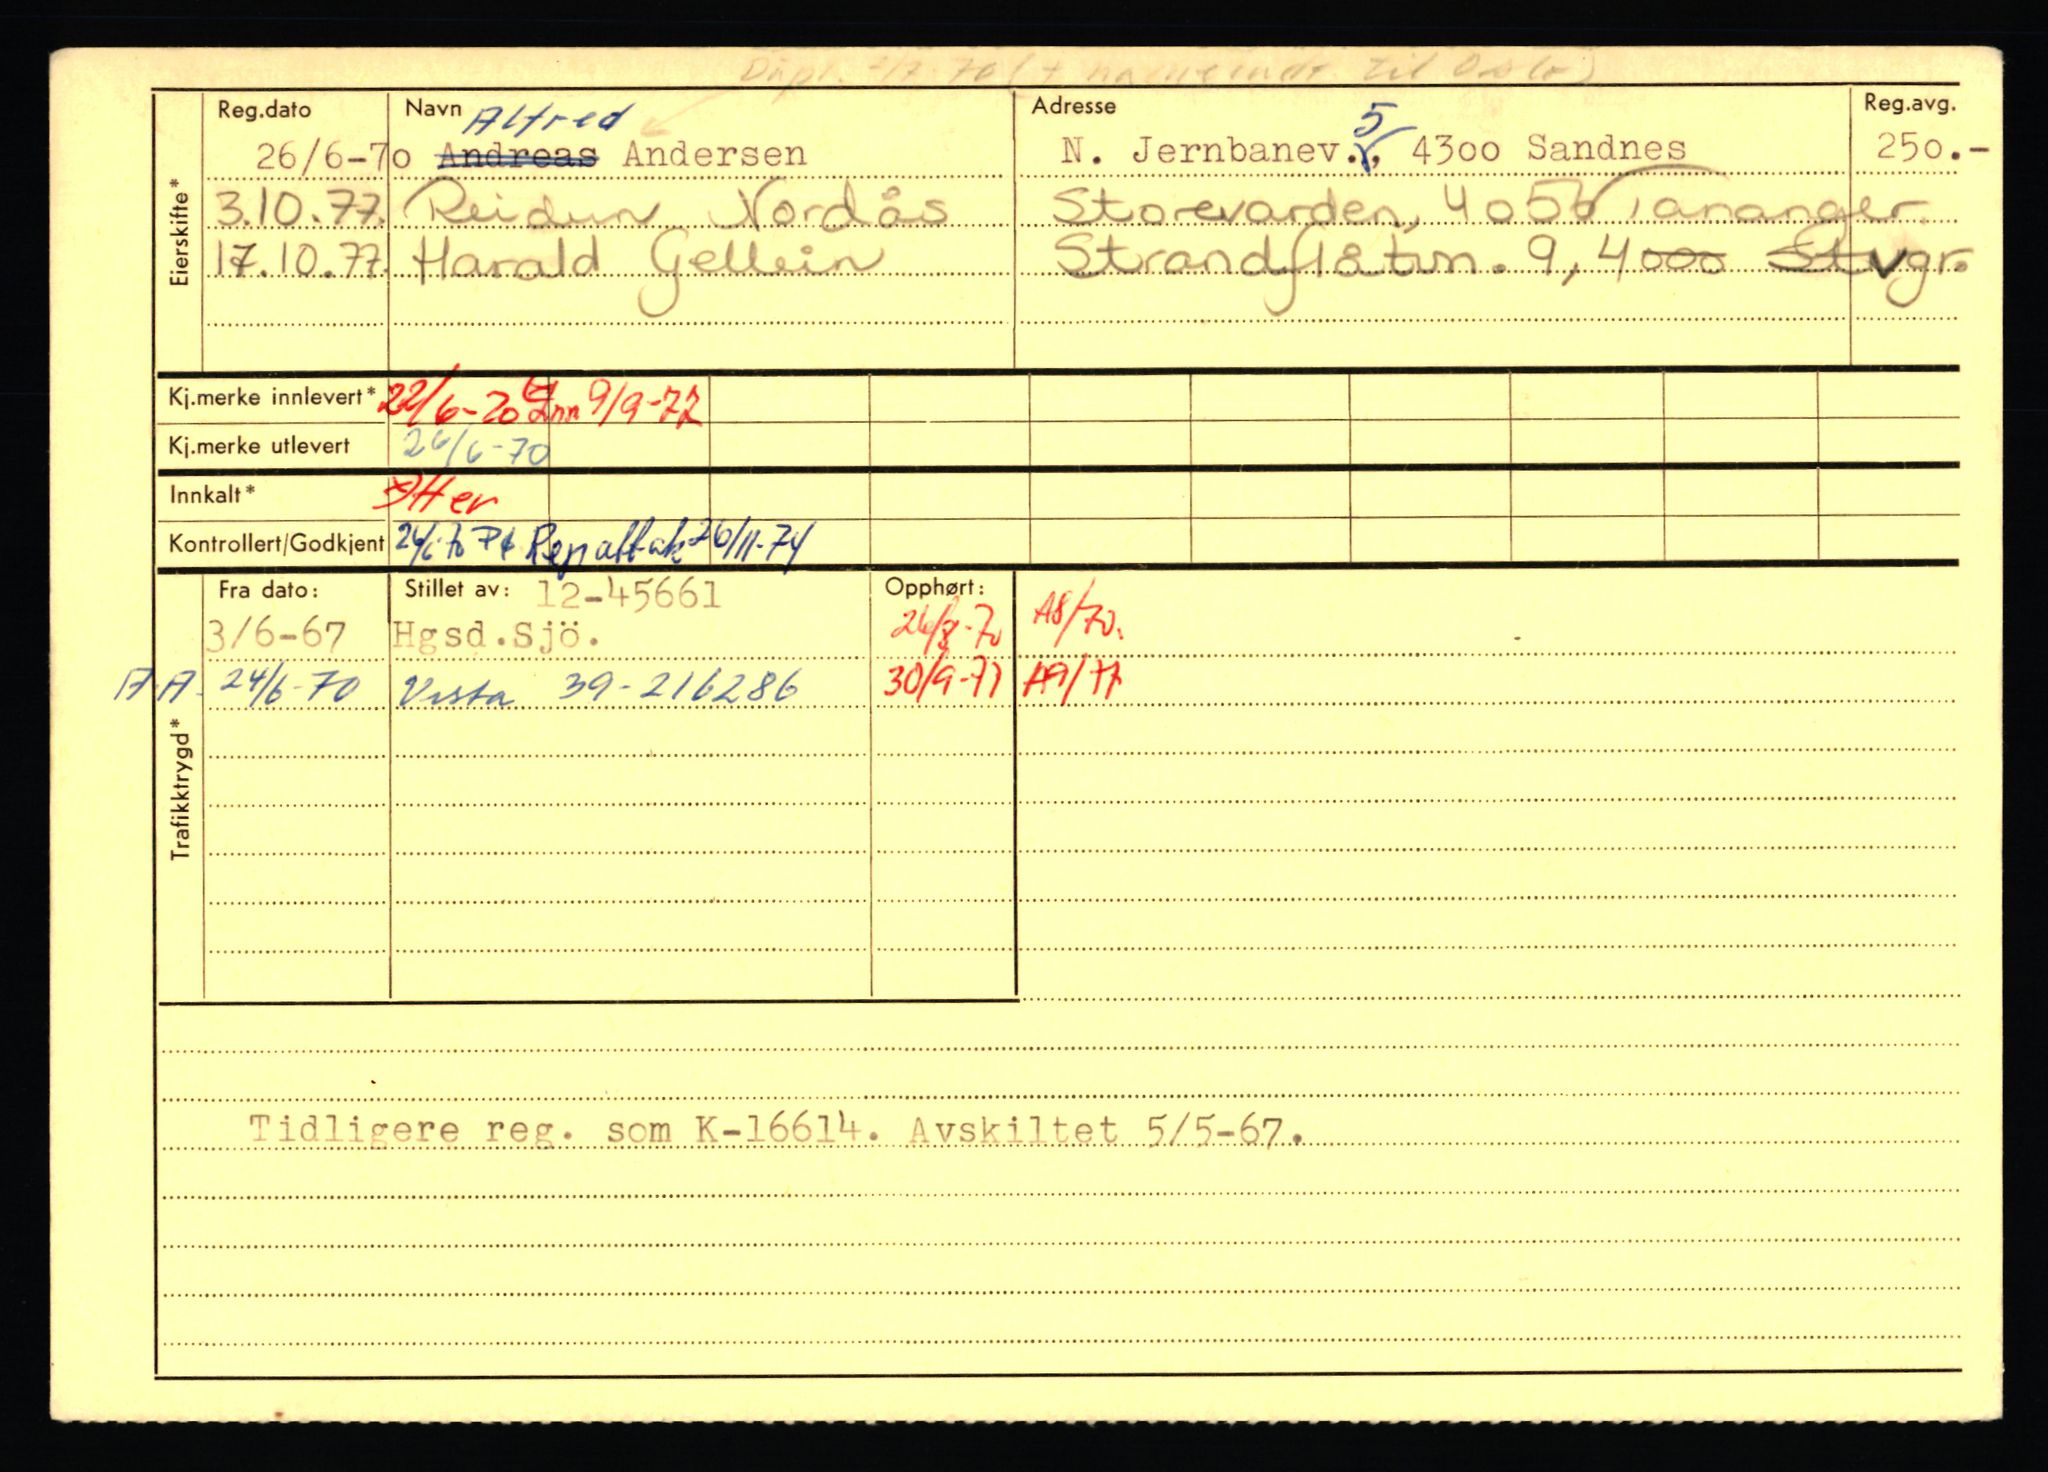 Dupl. 2/7-70 (+ til Oslo)
Reg.dato Navn Adresse Reg.avg.
Alfred 5
26/6-70 Andreas Andersen N. Jernbanev. , 4300 Sandnes 250.-
3.10.77. Reidun Nordås Storevarden, 4056 Tananger.
17.10.77. Harald Gellein Strandflåtvn. 9, 4000 Stvgr.
Eierskifte*
Kj.merke innlevert* 22/6-70 Inn 9/9-77
Kj.merke utlevert 26/6-70
Innkalt* Etter
Kontrollert/Godkjent 24/6-70 Rep attak 26/11-74
Fra dato: Stillet av: 12-45661 Opphørt:
3/6-67 Hgsd.Sjö. 26/8-70 A8/70.
A.A. 24/6-70 Vesta 39-216286 30/9-77 A9/77
Trafikktrygd*
Tidligere reg. som K-16614. Avskiltet 5/5-67.